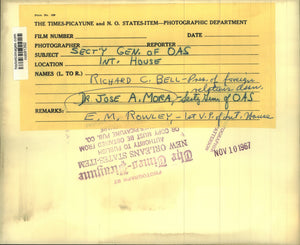 THE TIMES-PICAYUNE and N. O. STATES-ITEM—PHOTOGRAPHIC DEPARTMENT
FILM NUMBER DATE
PHOTOGRAPHER REPORTER
SUBJECT SECTY GEN. OF OAS
LOCATION INT. HOUSE
NAMES (L. TO R.) RICHARD C. BELL - Pres. of foreign
relations assn.
DR JOSE A. MORA, - Secty Gen of OAS
REMARKS: E. M. ROWLEY - 1st V.P. of Int. House
NOV 10 1967
The Times-Picayune
NEW ORLEANS STATES-ITEM
PHOTOGRAPH BY
AUTHORITY TO PUBLISH
OR COPY MUST BE OBTAINED FROM
TIMES-PICAYUNE PUB. CO.